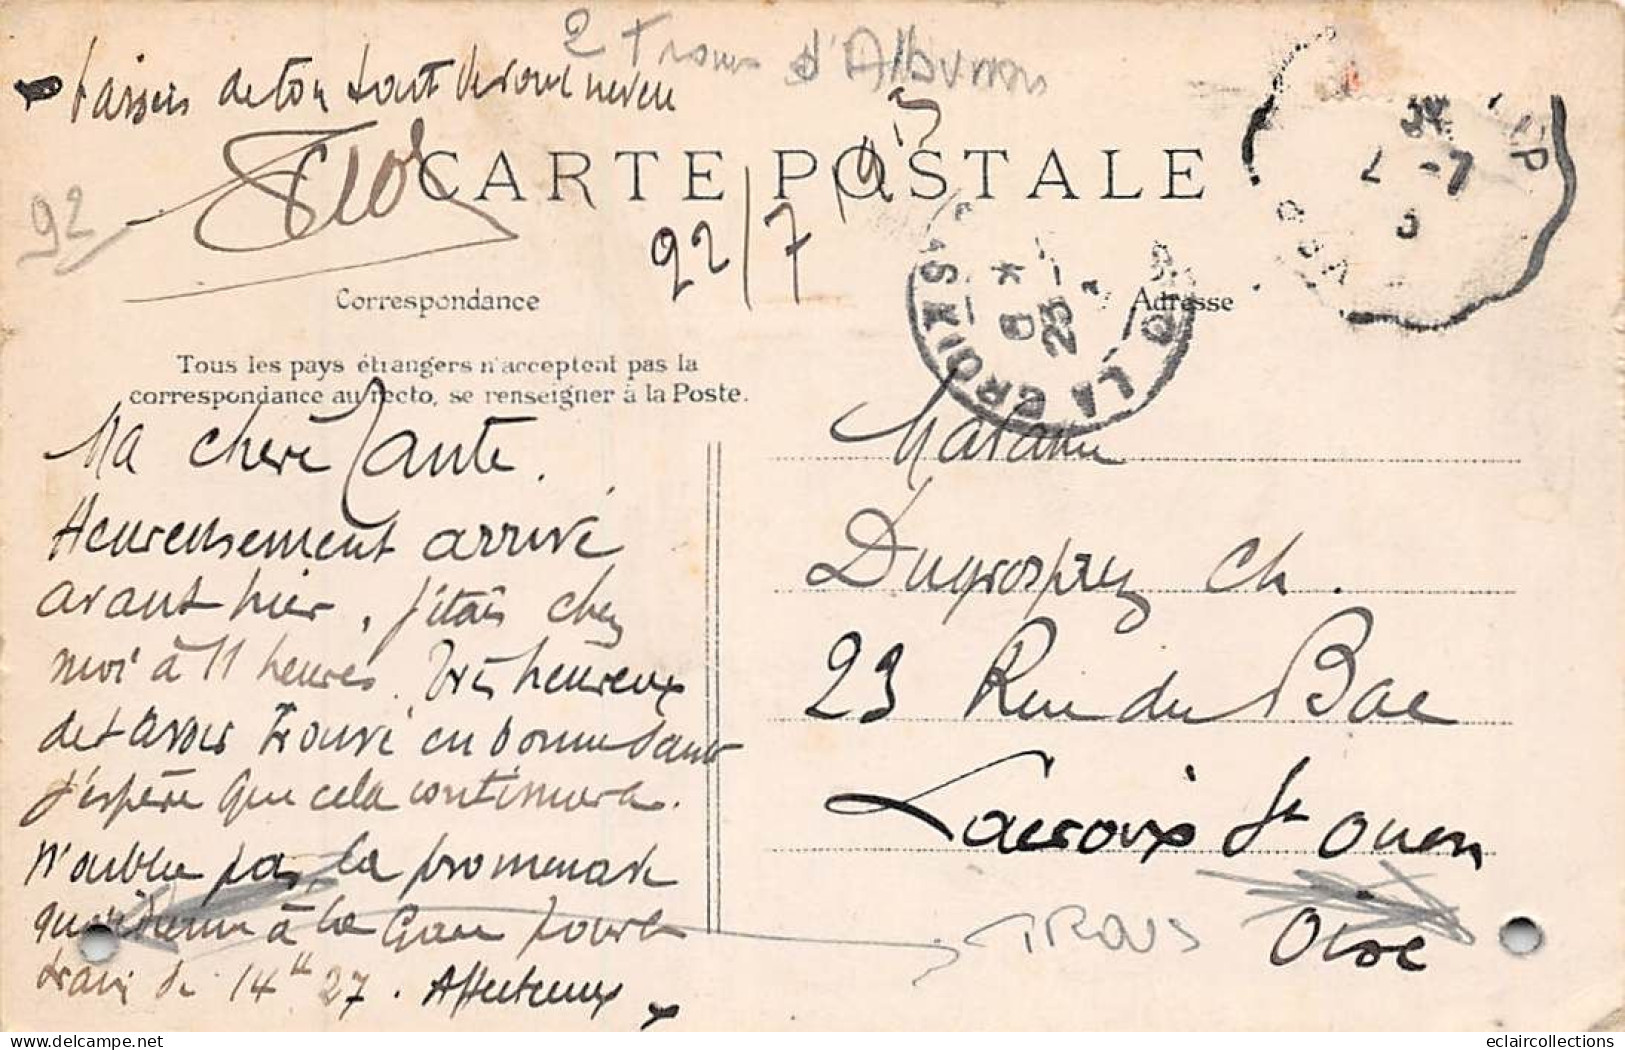 2 Trous d'Albums
baisers de ton tout dévoué neveu
CARTE POSTALE
92
92/7
Correspondance
Adresse
Tous les pays étrangers n'acceptent pas la
correspondance au recto, se renseigner à la Poste.
LA CROIX S
23
Ma chère Tante.
Heureusement arrivé
avant hier, j'étais chez
moi à 11 heures. Très heureux
de t'avoir trouvé en bonne santé
J'espère que cela continuera.
N'oublie pas la promenade
quotidienne à la Gare pour le
train de 14h 27. Affectueux
Madame
Ch.
23 Rue du Bac
Lacroix St Ouen
Oise
TROUS
eclaircollections